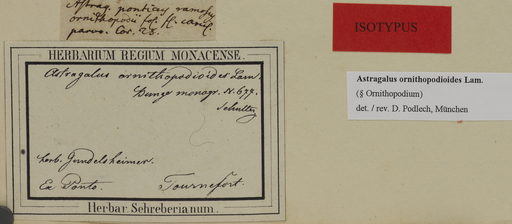 Astrag. ponticus ramosus
ornithopodii fol. fl. caerul.
parvo. Cor. 28.
HERBARIUM REGIUM MONACENSE.
Astragalus ornithopodioides Lam.
Bunge monogr. N. 677.
herb. Gundelsheimer.
Ex Ponto. Tournefort.
Herbar. Schreberianum.
ISOTYPUS
Astragalus ornithopodioides Lam.
(§ Ornithopodium)
det. / rev. D. Podlech, München